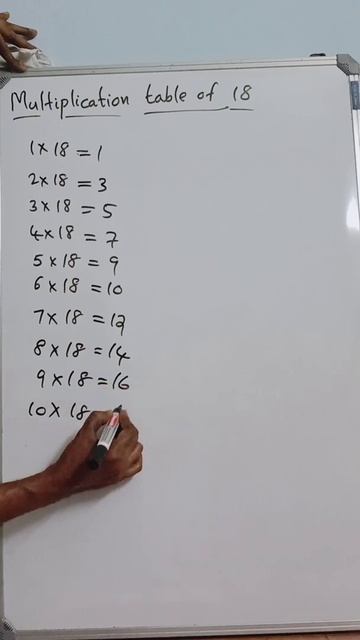 Multiplication table of 18
1 x 18 = 1
2 x 18 = 3
3 x 18 = 5
4 x 18 = 7
5 x 18 = 9
6 x 18 = 10
7 x 18 = 12
8 x 18 = 14
9 x 18 = 16
10 x 18